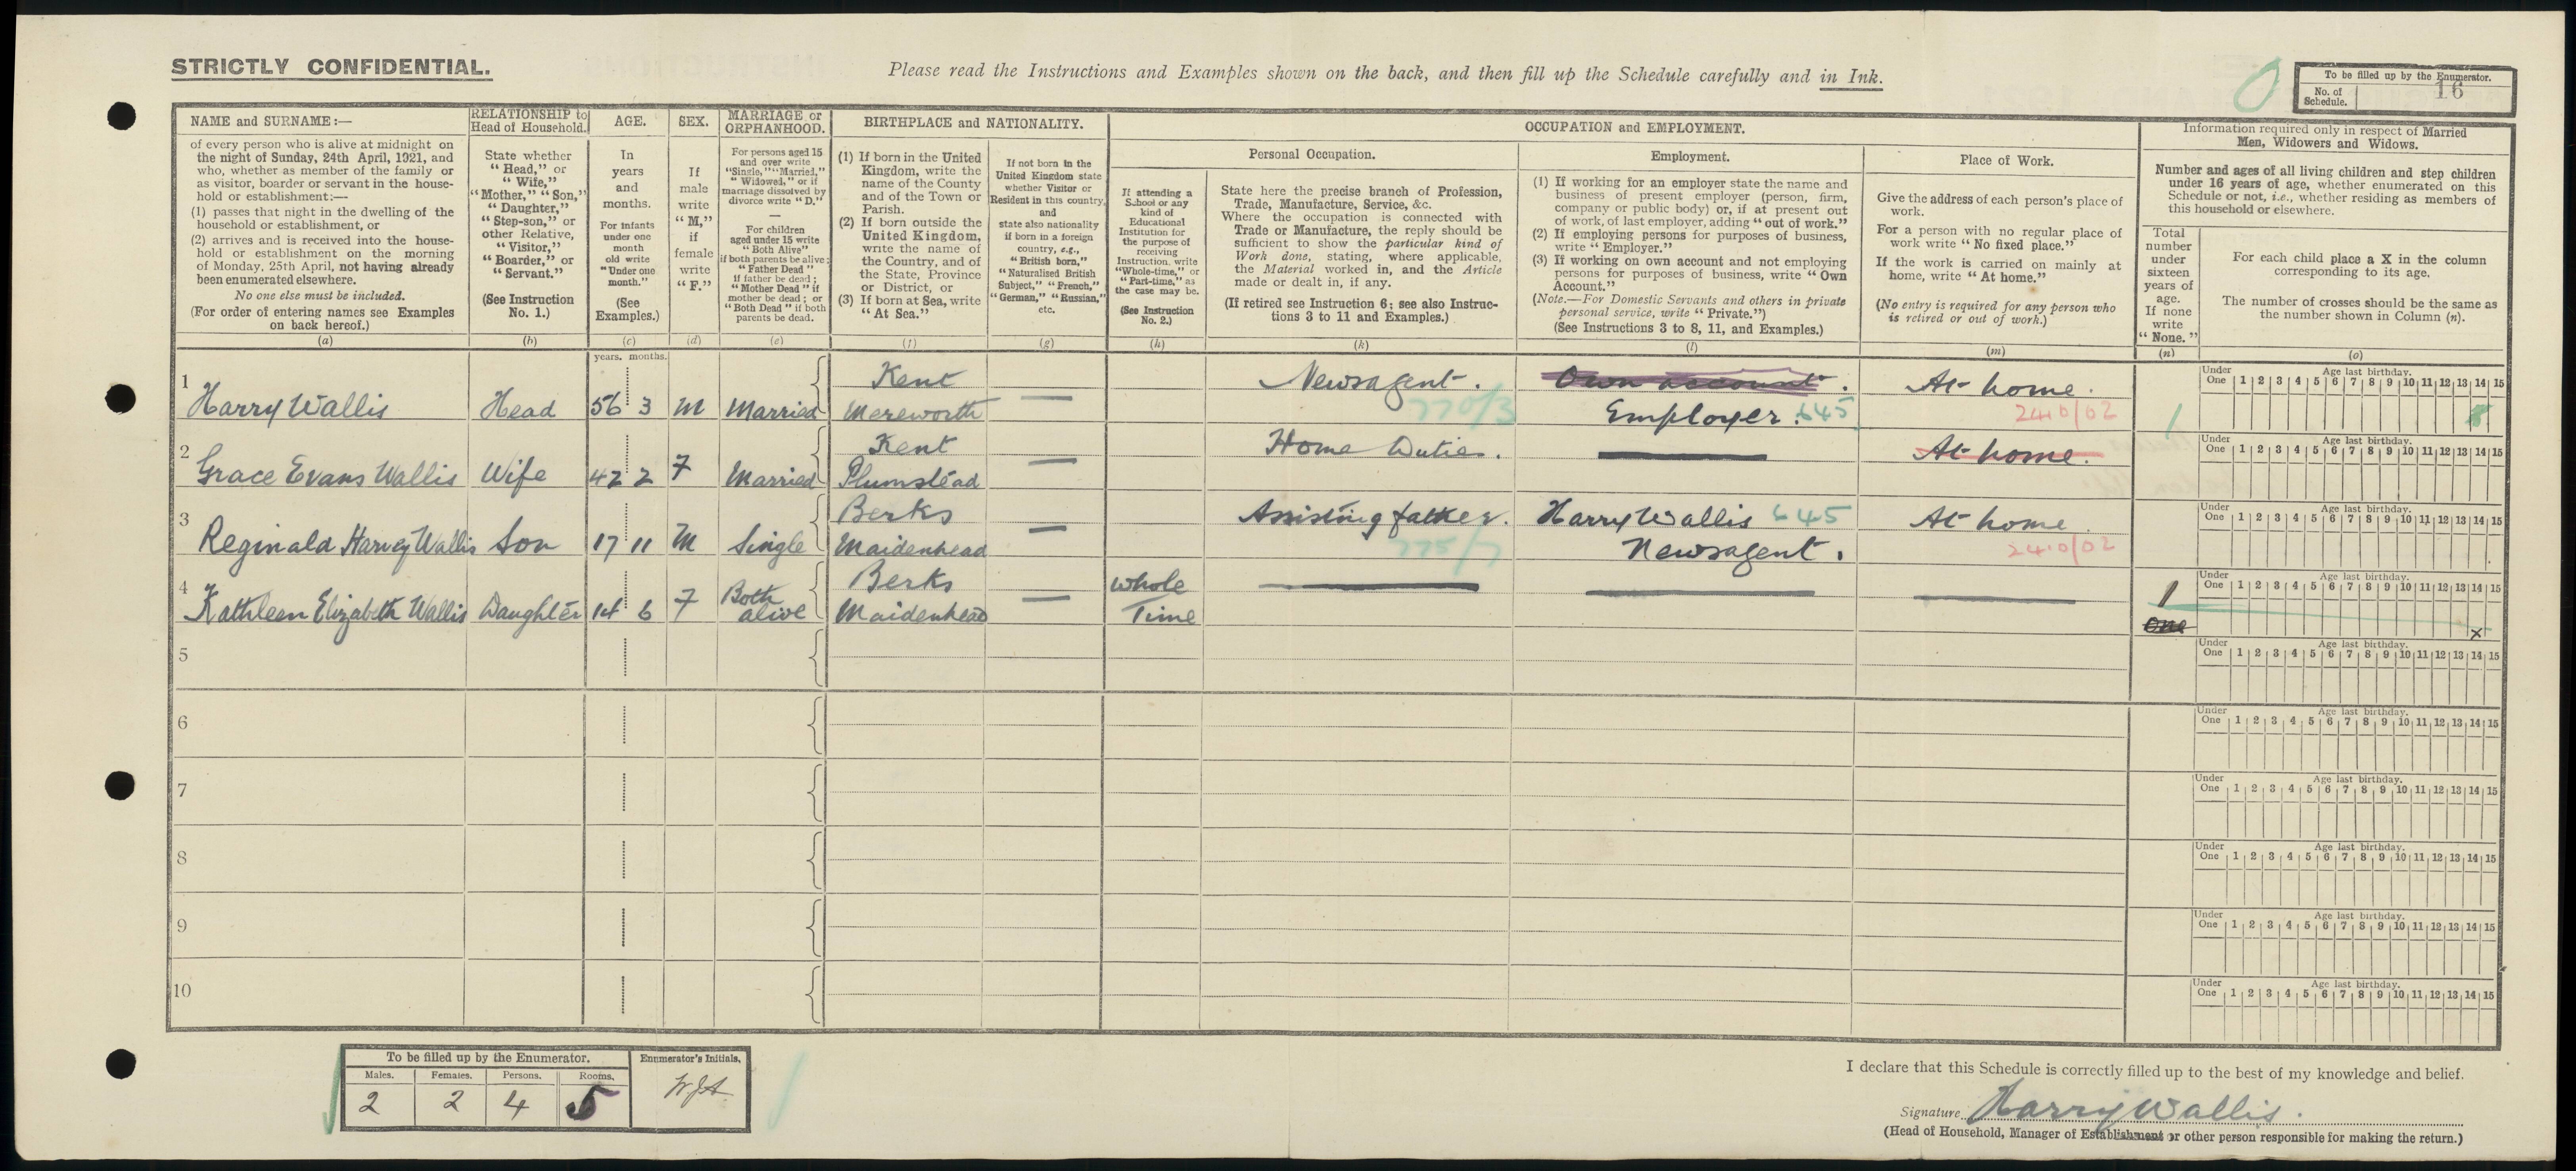 STRICTLY CONFIDENTIAL.
Please read the Instructions and Examples shown on the back, and then fill up the Schedule carefully and in Ink.
To be filled up by the Enumerator.
No. of Schedule. 16
NAME and SURNAME:—
of every person who is alive at midnight on
the night of Sunday, 24th April, 1921, and
who, whether as member of the family or
as visitor, boarder or servant in the house-
hold or establishment:—
(1) passes that night in the dwelling of the
household or establishment, or
(2) arrives and is received into the house-
hold or establishment on the morning
of Monday, 25th April, not having already
been enumerated elsewhere.
No one else must be included.
(For order of entering names see Examples
on back hereof.)
(a)
RELATIONSHIP to
Head of Household.
State whether
"Head," or
"Wife,"
"Mother," "Son,"
"Daughter,"
"Step-son," or
other Relative,
"Visitor,"
"Boarder," or
"Servant."
(See Instruction
No. 1.)
(b)
AGE.
In
years
and
months.
For infants
under one
month
old write
"Under one
month."
(See
Examples.)
(c)
SEX.
If
male
write
"M,"
if
female
write
"F."
(d)
MARRIAGE or
ORPHANHOOD.
For persons aged 15
and over write
"Single," "Married,"
"Widowed," or if
marriage dissolved by
divorce write "D."
—
For children
aged under 15 write
"Both Alive"
if both parents be alive;
"Father Dead"
if father be dead;
"Mother Dead" if
mother be dead; or
"Both Dead" if both
parents be dead.
(e)
BIRTHPLACE and NATIONALITY.
(1) If born in the United
Kingdom, write the
name of the County
and of the Town or
Parish.
(2) If born outside the
United Kingdom,
write the name of
the Country, and of
the State, Province
or District, or
(3) If born at Sea, write
"At Sea."
(f)
If not born in the
United Kingdom state
whether Visitor or
Resident in this country,
and
state also nationality
if born in a foreign
country, e.g.,
"British born,"
"Naturalised British
Subject," "French,"
"German," "Russian,"
etc.
(g)
OCCUPATION and EMPLOYMENT.
If attending a
School or any
kind of
Educational
Institution for
the purpose of
receiving
Instruction, write
"Whole-time," or
"Part-time," as
the case may be.
(See Instruction
No. 2.)
(h)
Personal Occupation.
State here the precise branch of Profession,
Trade, Manufacture, Service, &c.
Where the occupation is connected with
Trade or Manufacture, the reply should be
sufficient to show the particular kind of
Work done, stating, where applicable,
the Material worked in, and the Article
made or dealt in, if any.
(If retired see Instruction 6; see also Instruc-
tions 3 to 11 and Examples.)
(k)
Employment.
(1) If working for an employer state the name and
business of present employer (person, firm,
company or public body) or, if at present out
of work, of last employer, adding "out of work."
(2) If employing persons for purposes of business,
write "Employer."
(3) If working on own account and not employing
persons for purposes of business, write "Own
Account."
(Note.—For Domestic Servants and others in private
personal service, write "Private.")
(See Instructions 3 to 8, 11, and Examples.)
(l)
Place of Work.
Give the address of each person's place of
work.
For a person with no regular place of
work write "No fixed place."
If the work is carried on mainly at
home, write "At home."
(No entry is required for any person who
is retired or out of work.)
(m)
Information required only in respect of Married
Men, Widowers and Widows.
Number and ages of all living children and step children
under 16 years of age, whether enumerated on this
Schedule or not, i.e., whether residing as members of
this household or elsewhere.
Total
number
under
sixteen
years of
age.
If none
write
"None."
(n)
For each child place a X in the column
corresponding to its age.
The number of crosses should be the same as
the number shown in Column (n).
(o)
years. months.
1 Harry Wallis Head 56 3 M Married Kent Mereworth — Newsagent. 770/3 Own account. Employer. 645 At home. 240/02 1
Under One 1 2 3 4 5 6 7 8 9 10 11 12 13 14 15 Age last birthday.
2 Grace Evans Wallis Wife 42 2 F Married Kent Plumstead — Home Duties. — At home.
Under One 1 2 3 4 5 6 7 8 9 10 11 12 13 14 15 Age last birthday.
3 Reginald Harvey Wallis Son 17 11 M Single Berks Maidenhead — Assisting father. 775/7 Harry Wallis 645 Newsagent. At home. 240/02
Under One 1 2 3 4 5 6 7 8 9 10 11 12 13 14 15 Age last birthday.
4 Kathleen Elizabeth Wallis Daughter 14 6 F Both alive Berks Maidenhead — Whole Time — — — 1 One x
Under One 1 2 3 4 5 6 7 8 9 10 11 12 13 14 15 Age last birthday.
5
Under One 1 2 3 4 5 6 7 8 9 10 11 12 13 14 15 Age last birthday.
6
Under One 1 2 3 4 5 6 7 8 9 10 11 12 13 14 15 Age last birthday.
7
Under One 1 2 3 4 5 6 7 8 9 10 11 12 13 14 15 Age last birthday.
8
Under One 1 2 3 4 5 6 7 8 9 10 11 12 13 14 15 Age last birthday.
9
Under One 1 2 3 4 5 6 7 8 9 10 11 12 13 14 15 Age last birthday.
10
Under One 1 2 3 4 5 6 7 8 9 10 11 12 13 14 15 Age last birthday.
To be filled up by the Enumerator.
Enumerator's Initials.
Males. Females. Persons. Rooms.
2 2 4 5
I declare that this Schedule is correctly filled up to the best of my knowledge and belief.
Signature Harry Wallis.
(Head of Household, Manager of Establishment or other person responsible for making the return.)